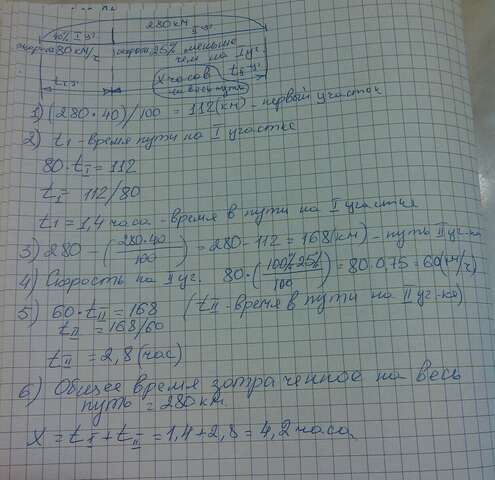 280 км
40% I уг
II уг
скорость 80 км/ч скорость 25% меньше
чем на I уг.
t I уг t II уг
X часов
на весь путь
1) (280 · 40)/100 = 112 (км) - первый участок
2) t₁ - время пути на I участке
80 · t I = 112
t I = 112/80
t₁ = 1,4 часа - время в пути на I участке
3) 280 - (280·40/100) = 280 - 112 = 168 (км) - путь II уг-ка
4) Скорость на II уг. 80 · (100%-25%/100) = 80 · 0.75 = 60 (км/ч)
5) 60 · t II = 168 (t II - время в пути на II уг-ка)
t II = 168/60
t II = 2,8 (час)
6) Общее время затраченное на весь
путь = 280 км.
X = t I + t II = 1,4 + 2,8 = 4,2 часа